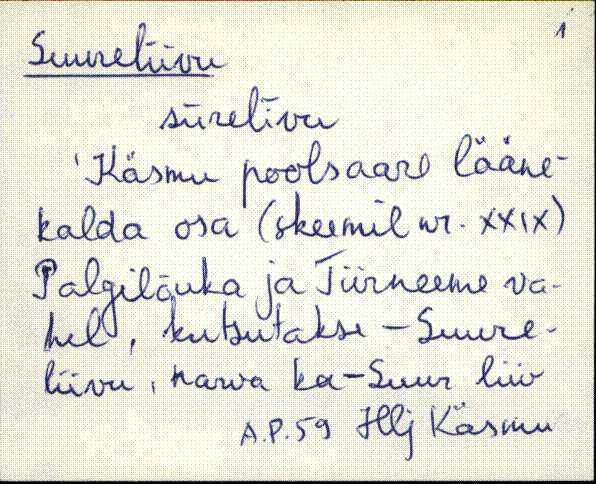 1
Suureliivu
sūrelīvu
'Käsmu poolsaare lääne-
kalda osa (skeemil nr. XXIX)
Palgilõuka ja Tiirneeme va-
hel, kutsutakse - Suure-
liivu, harva ka - Suur liiv
A.P.59 Hlj Käsmu